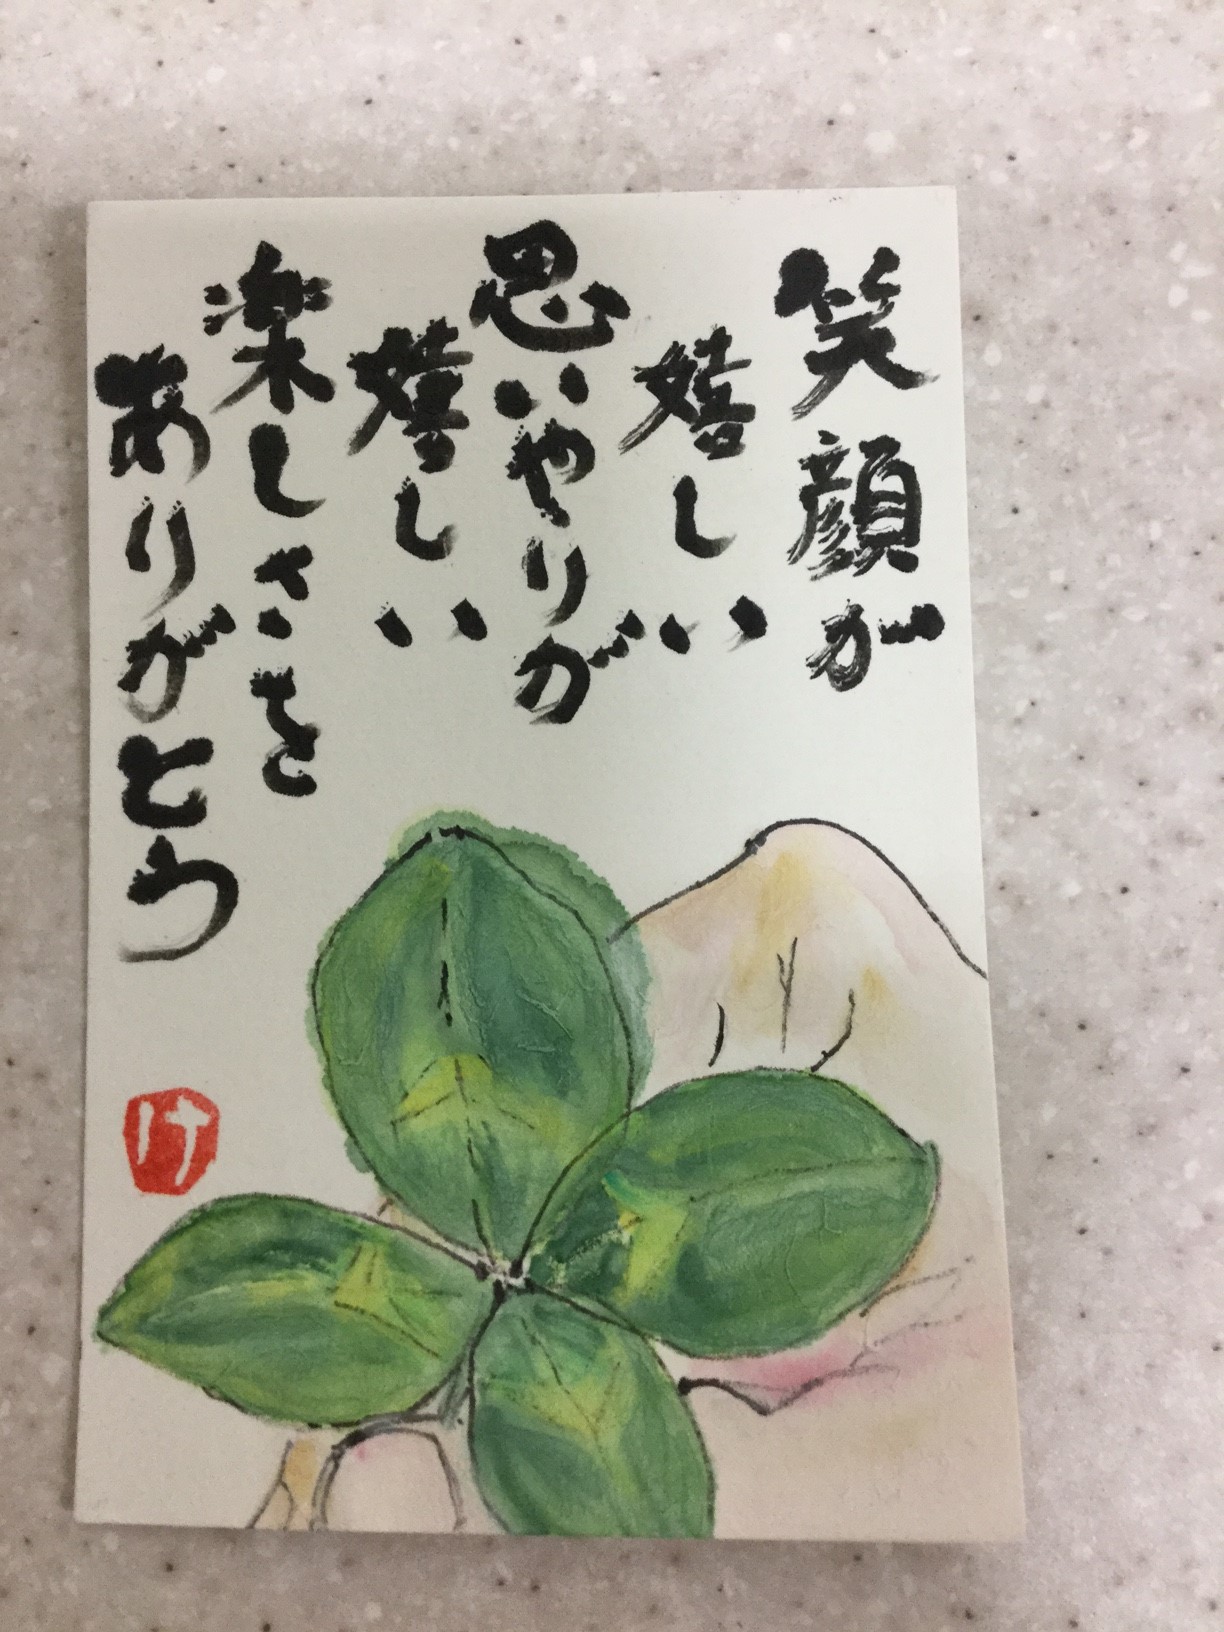 笑顔が
嬉しい
思いやりが
嬉しい
楽しさを
ありがとう
け